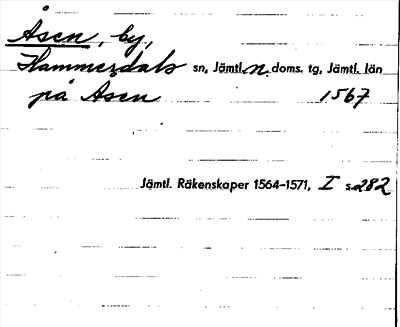 Åsen, by,
Hammerdals sn, Jämtl. n. doms. tg, Jämtl. län
på Asen 1567
Jämtl. Räkenskaper 1564-1571, I s. 282